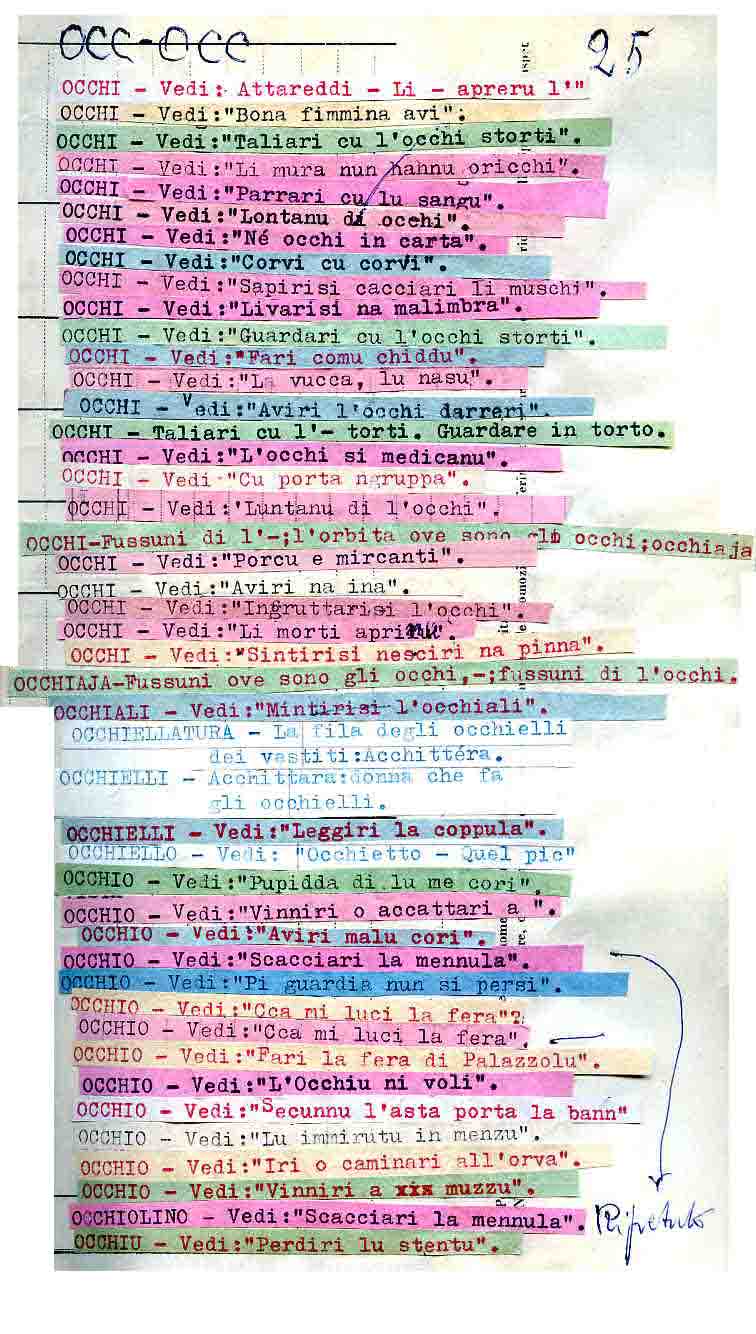 OCC-OCC 25
OCCHI - Vedi: Attareddi - Li - apreru l'"
OCCHI - Vedi:"Bona fimmina avi";
OCCHI - Vedi:"Taliari cu l'occhi storti".
OCCHI - Vedi:"Li mura nun hannu oricchi".
OCCHI - Vedi:"Parrari cu lu sangu".
OCCHI - Vedi:"Lontanu di occhi".
OCCHI - Vedi:"Né occhi in carta".
OCCHI - Vedi:"Corvi cu corvi".
OCCHI - Vedi:"Sapirisi cacciari li muschi".
OCCHI - Vedi:"Livarisi na malimbra".
OCCHI - Vedi:"Guardari cu l'occhi storti".
OCCHI - Vedi:"Fari comu chiddu".
OCCHI - Vedi:"La vucca, lu nasu".
OCCHI - Vedi:"Aviri l'occhi darreri".
OCCHI - Taliari cu l'- torti. Guardare in torto.
OCCHI - Vedi:"L'occhi si medicanu".
OCCHI - Vedi "Cu porta ngruppa".
OCCHI - Vedi:'Luntanu di l'occhi".
OCCHI-Fussuni di l'-;l'orbita ove sono gli occhi;occhiaja
OCCHI - Vedi:"Porcu e mircanti".
OCCHI - Vedi:"Aviri na ina".
OCCHI - Vedi:"Ingruttarisi l'occhi".
OCCHI - Vedi:"Li morti
OCCHI - Vedi:"Sintirisi nesciri na pinna".
OCCHIAJA-Fussuni ove sono gli occhi,-;fussuni di l'occhi.
OCCHIALI - Vedi:"Mintirisi l'occhiali".
OCCHIELLATURA - La fila degli occhielli
dei vastiti:Acchittéra.
OCCHIELLI - Acchittara:donna che fa
gli occhielli.
OCCHIELLI - Vedi:"Leggiri la coppula".
OCCHIELLO - Vedi: "Occhietto - Quel pic"
OCCHIO - Vedi:"Pupidda di lu me cori".
OCCHIO - Vedi:"Vinniri o accattari a ".
OCCHIO - Vedi:"Aviri malu cori".
OCCHIO - Vedi:"Scacciari la mennula".
OCCHIO - Vedi:"Pi guardia nun si persi".
OCCHIO - Vedi:"Cca mi luci la fera"?
OCCHIO - Vedi:"Cca mi luci la fera".
OCCHIO - Vedi:"Fari la fera di Palazzolu".
OCCHIO - Vedi:"L'Occhiu ni voli".
OCCHIO - Vedi:"Secunnu l'asta porta la bann"
OCCHIO - Vedi:"Lu immirutu in menzu".
OCCHIO - Vedi:"Iri o caminari all'orva".
OCCHIO - Vedi:"Vinniri a xxx muzzu".
OCCHIOLINO - Vedi:"Scacciari la mennula". Ripetuto
OCCHIU - Vedi:"Perdiri lu stentu".